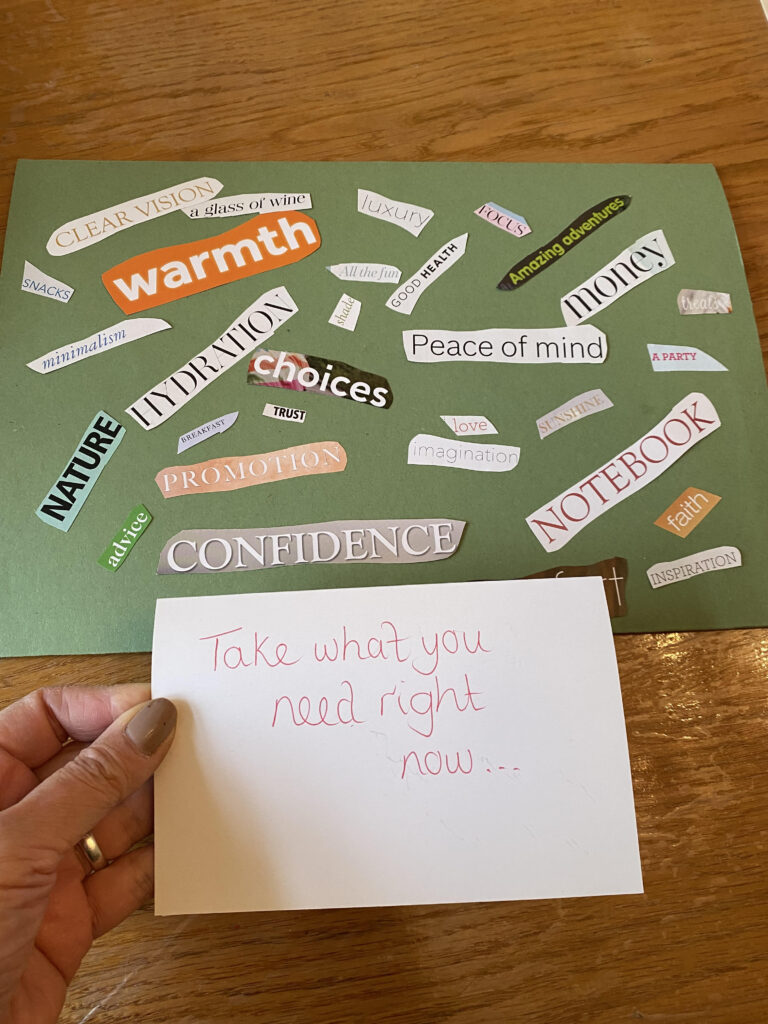 CLEAR VISION
a glass of wine
luxury
FOCUS
Amazing adventures
warmth
All the fun
GOOD HEALTH
money
SNACKS
shade
treats
minimalism
HYDRATION
Peace of mind
A PARTY
choices
TRUST
BREAKFAST
love
SUNSHINE
NATURE
PROMOTION
imagination
NOTEBOOK
advice
CONFIDENCE
faith
INSPIRATION
Take what you
need right
now...